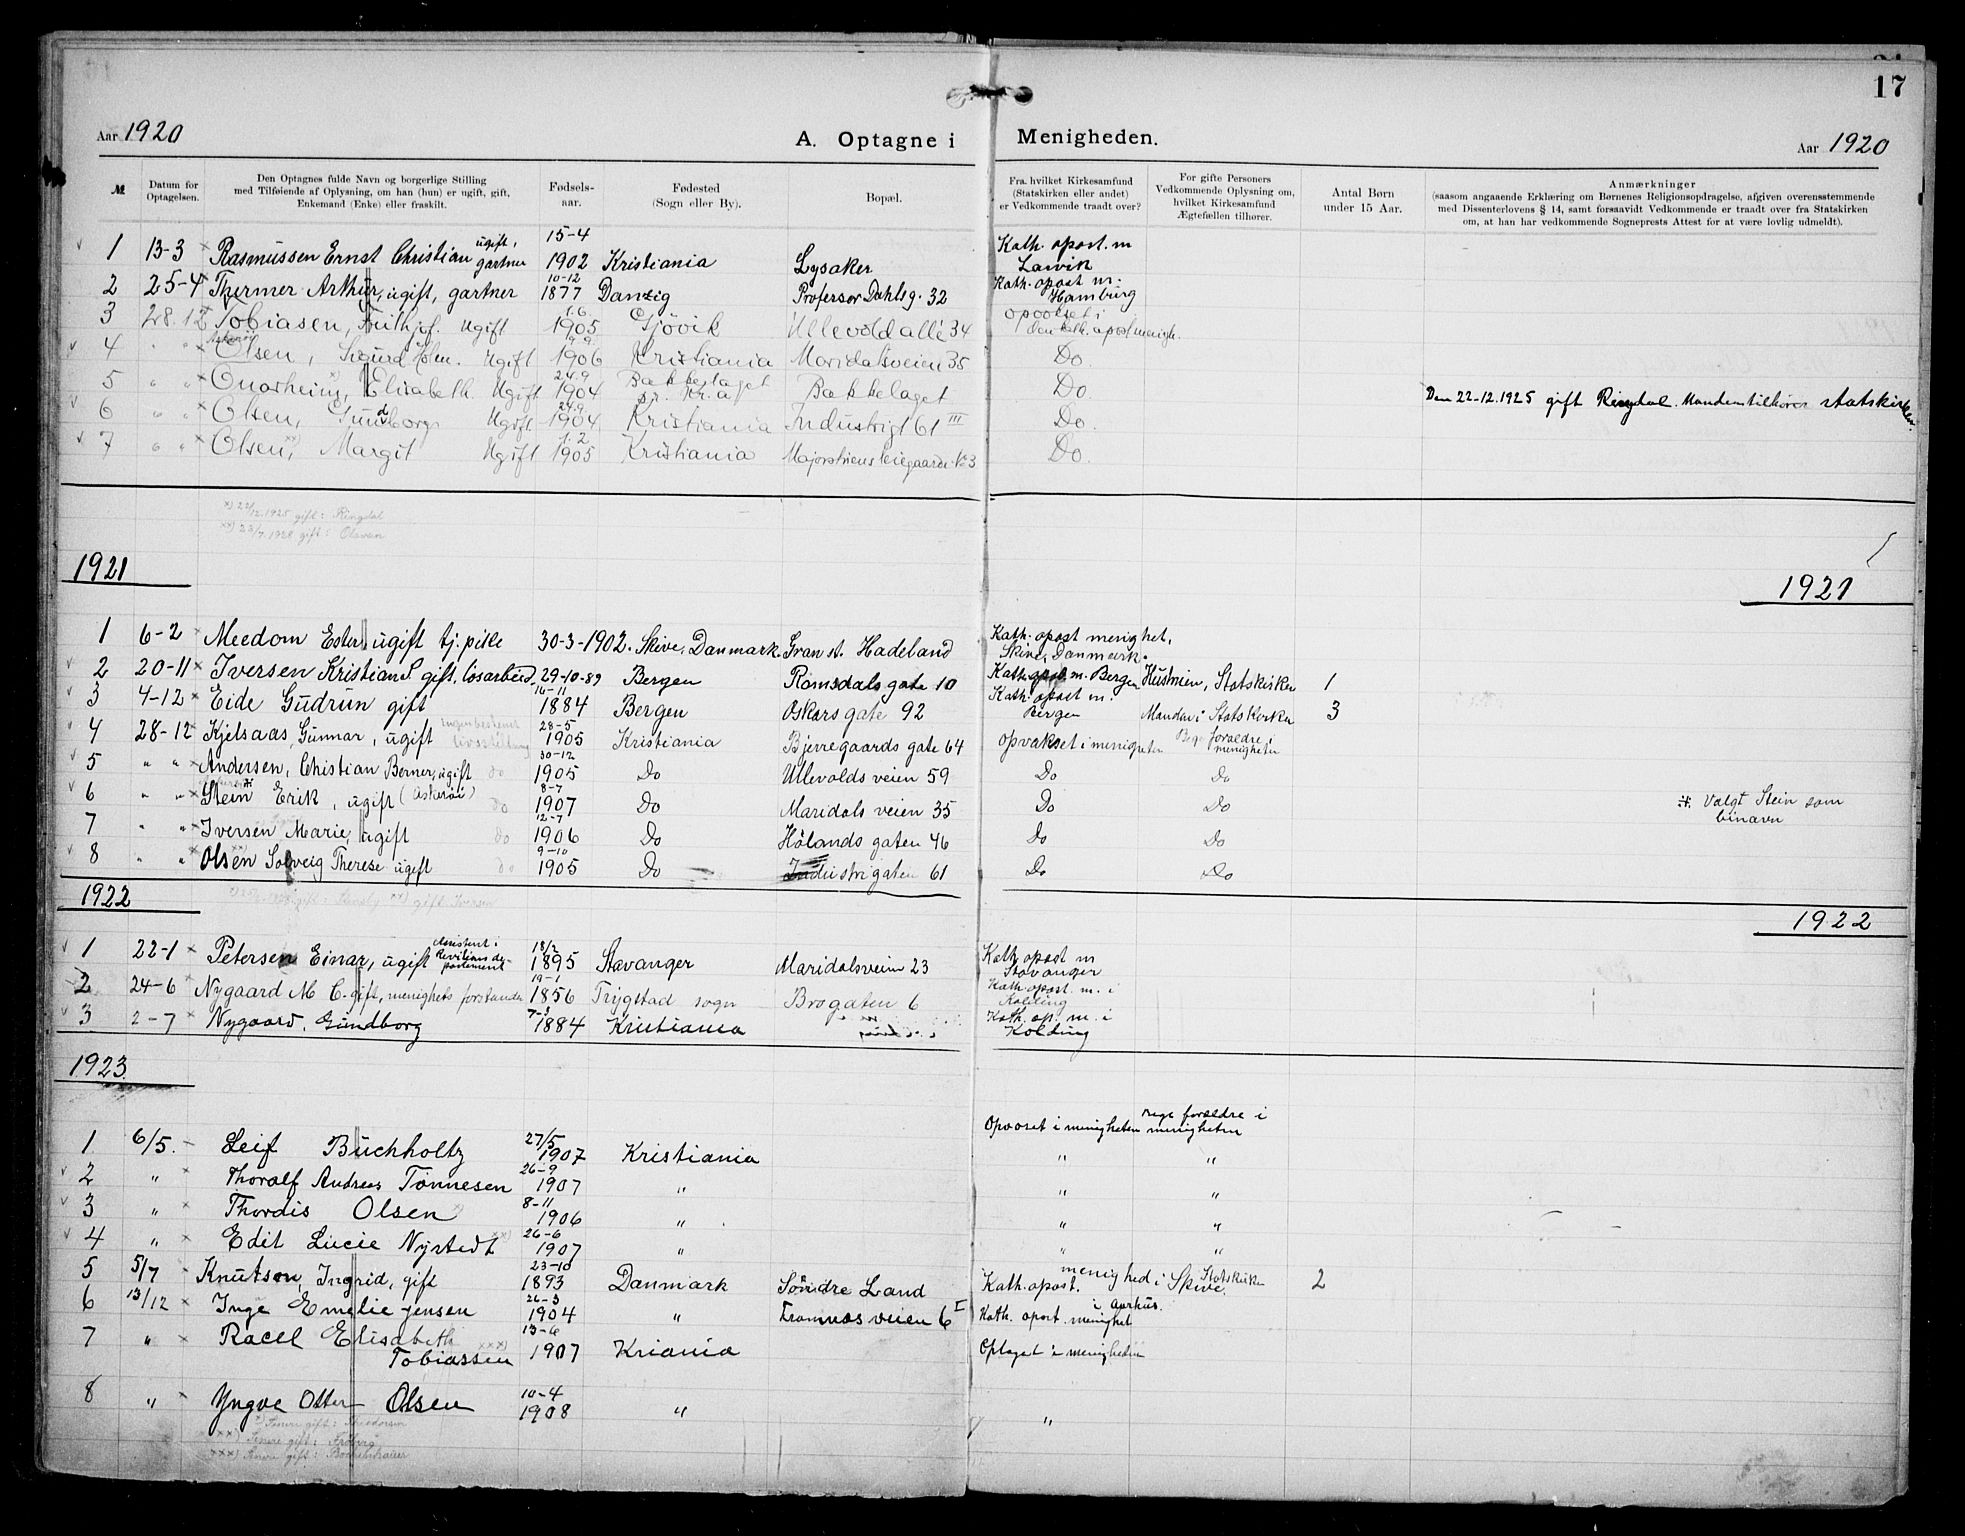 17
Aar 1920 A. Optagne i Menigheden. Aar 1920
№ Datum for Optagelsen. Den Optagnes fulde Navn og borgerlige Stilling med Tilføiende af Oplysning, om han (hun) er ugift, gift, Enkemand (Enke) eller fraskilt. Fødsels-aar. Fødested (Sogn eller By). Bopæl. Fra hvilket Kirkesamfund (Statskirken eller andet) er Vedkommende traadt over? For gifte Personers Vedkommende Oplysning om, hvilket Kirkesamfund Ægtefællen tilhører. Antal Børn under 15 Aar. Anmærkninger (saasom angaaende Erklæring om Børnenes Religionsopdragelse, afgiven overensstemmende med Dissenterlovens § 14, samt forsaavidt Vedkommende er traadt over fra Statskirken om, at han har vedkommende Sogneprests Attest for at være lovlig udmeldt).
1 13-3 Rasmussen Ernst Christian ugift, gartner 15-4 1902 Kristiania Lysaker Kath. apost. m Larvik
2 25-4 Thermer Arthur, ugift, gartner 10-12 1877 Danzig Professor Dahlsg. 32 Kath. apost m. Hamburg
3 28.12 Tobiasen, Frithjof. Ugift 1.6 1905 Gjövik Ullevold allé 34 opvokset i den kath. apost menigh.
4 " " Olsen, Sigurd Holm. Ugift 9.9. 1906 Kristiania Maridalsveien 35 Do.
5 " " Onarheim, x) Elisabeth. Ugift 24.9 1904 Bækkelaget pr. Kr.a Bækkelaget Do. Den 22-12.1925 gift Ringdal. Manden tilhører statskirken.
6 " " Olsen, Gundborg Ugift 24.9. 1904 Kristiania Industrigt 61 III Do.
7 " " Olsen, xx) Margit Ugift 1.2 1905 Kristiania Majorstuens leiegaarde. No 3 Do.
x) 22/12.1925 gift: Ringdal
xx) 23/7.1928 gift: Olawsen
1921 1921
1 6-2 Meedom Ester, ugift tj. pike 30-3-1902. Skive, Danmark. Gran st. Hadeland Kath. apost menighet, Skive, Danmark.
2 20-11 Iversen Kristian S. gift, løsarbeid. 29-10-89 Bergen Romsdals gate 10 Kath. apost. m. Bergen Hustruen, Statskirken 1
3 4-12 Eide Gudrun gift 14-11 1884 Bergen Oskars gate 92 Kath. apost m. Bergen Manden i Statskirken 3
4 28-12 Kjelsaas, Gunnar, ugift ingen bestemt livsstilling 28-5 1905 Kristiania Bjerregaards gate 64 opvokset i menigheten Begge foreldre i menigheten
5 " " Andersen, Christian Berner, ugift do 30-12 1905 Do Ullevolds veien 59 Do Do
6 " " Stein Erik, ugift (Askerøi) do 8-7 1907 Do Maridals veien 35 Do Do Valgt Stein som binavn
7 " " Iversen Marie, ugift do 12-7 1906 Do Hölands gaten 46 Do Do
8 " " Olsen Solveig Therese ugift do 9-10 1905 Do Industrigaten 61 Do Do
1922 1922
1 22-1 Petersen Einar, ugift Assistent i Revisions departement 18/2 1895 Stavanger Maridalsveien 23 Kath. apost m Stavanger
2 24-6 Nygaard M C. gift, menighets forstander 19-1 1856 Trygstad sogn Brogaten 6 Kath. apost. m. i Kolding
3 2-7 Nygaard, Gundborg 7-3 1884 Kristiania Kath. ap. m. i Kolding
1923.
1 6/5. Leif Buchholtz 27/5 1907 Kristiania Opvoxet i menigheten Bege forældre i menigheten
2 " Thoralf Andreas Tønnesen 26-9 1907 " " "
3 " Thordis Olsen x) 8-11 1906 " " "
4 " Edit Lucie Nystedt xx) 26-6 1907 " " "
5 5/7 Knutson, Ingrid, gift 23-10 1893 Danmark Søndre Land Kath. apost. menighed i Skive. Statskirken 2
6 13/12 Inge Emelie Jensen 26-3 1904 " Framnæs veien 6 I Kath. apost. menighet i Aarhus.
7 " Racel Elisabeth Tobiassen xxx) 13-6 1907 Kriania Optaget i menigheden
8 " Yngve Otter Olsen 10-4 1908 " "
x) Senere gift:
xx) Senere gift: Fröberg
xxx) Senere gift: